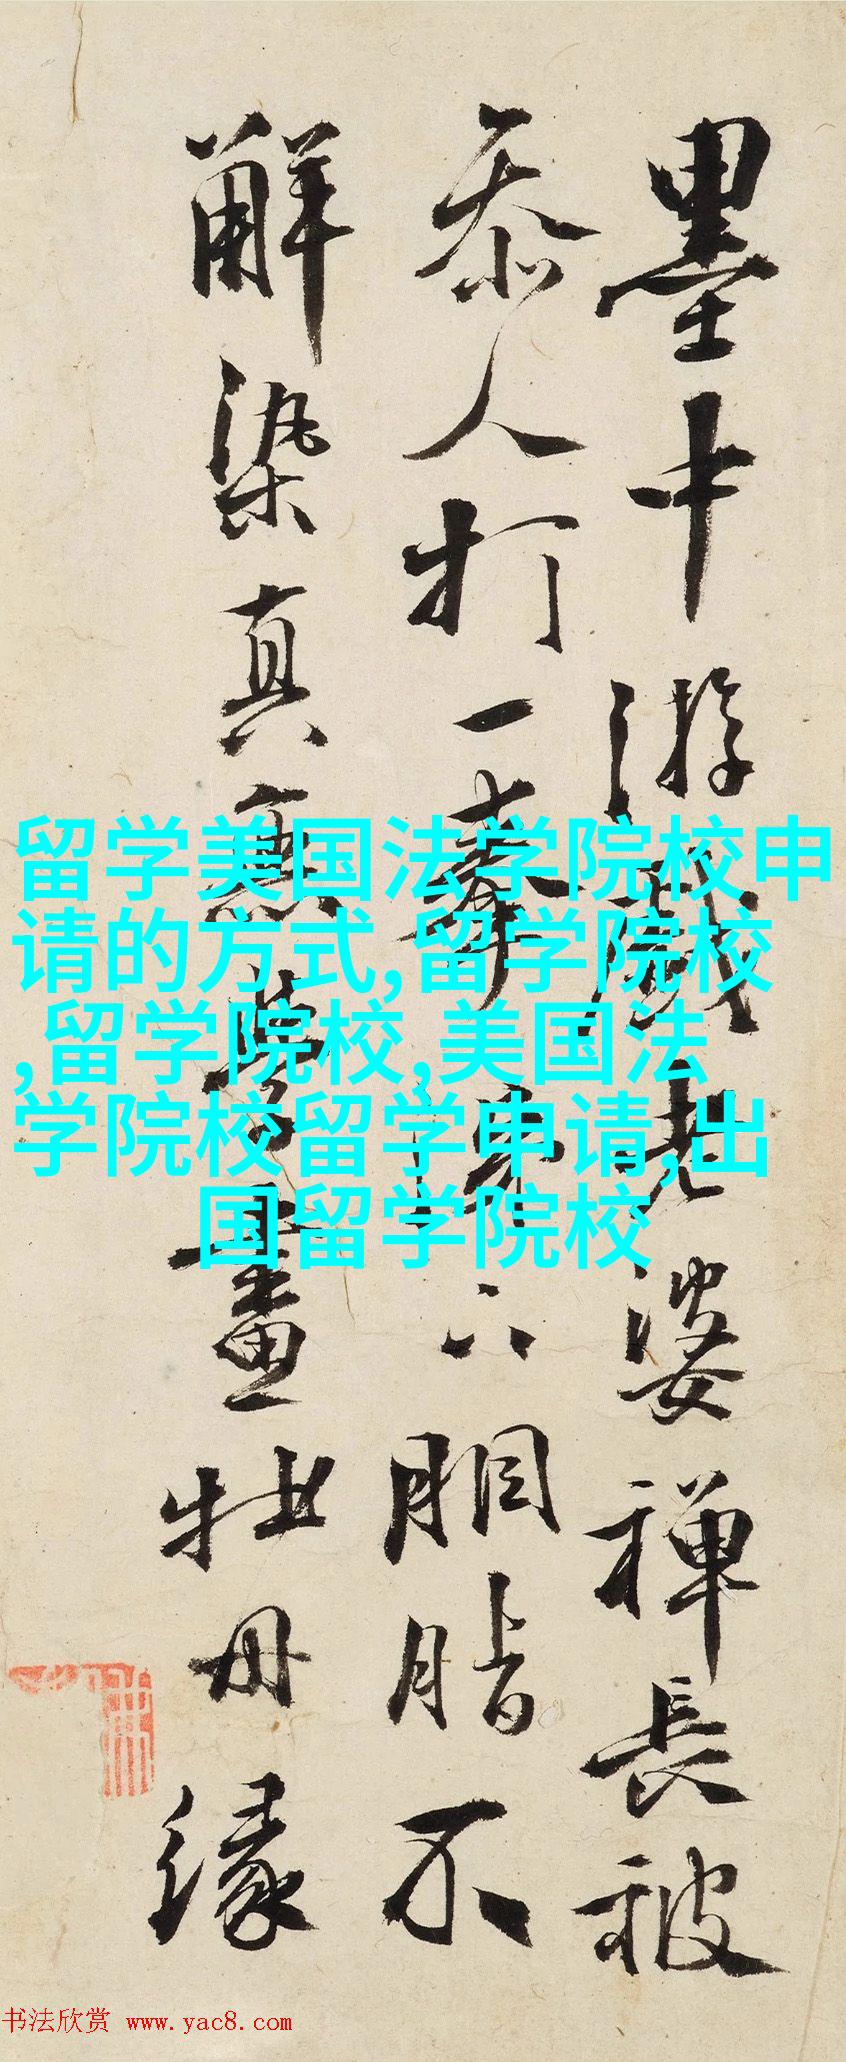 留学美国法学院校申
请的方式,留学院校
,留学院校,美国法
学院校留学申请,出
国留学院校
墨中游戲老婆禅長被
人打一拳 下胭脂不
解染真無 畫牡丹缘
书法欣赏 www.yac8.com